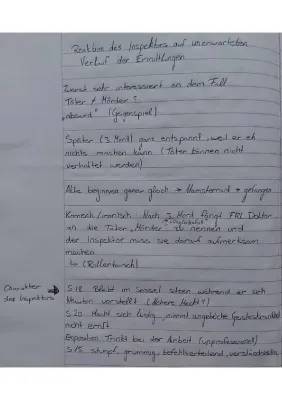 Reaktion des Inspektors auf unerwarteten
Verlauf der Ermittlungen
Zuerst sehr interessiert an dem Fall
Täter ≠ Mörder?
"absurd" (Gegenspiel)
Später (3. Mord) ganz entspannt, weil er eh
nichts machen kann (Täter können nicht
verhaftet werden)
Akte beginnen genau gleich → Hamsterrad → gefangen
Komisch/ironisch: Nach 3. Mord fängt FRL Doktor
an die Täter "Mörder" zu nennen und
der Inspektor muss sie darauf aufmerksam
machen
↳ (Rollentausch)
Charakter des Inspektors →
S.18 Bleibt im Sessel sitzen während er sich
Newton vorstellt (höhere Macht?)
S.20 Macht sich lustig, nimmt angebliche Geisteskrankheit
nicht ernst
Exposition: Trinkt bei der Arbeit (unprofessionell)
S.15 stumpf, grummig, befehlserteilend,